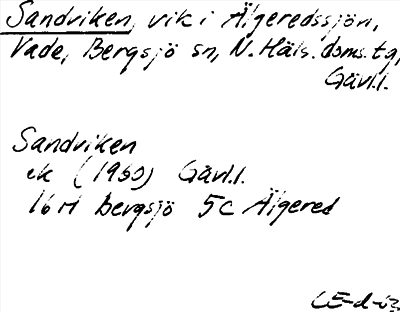 Sandviken, vik i Älgeredssjön,
Vade, Bergsjö sn, N. Häls. doms. tg,
Gävl.l.
Sandviken
ek (1960) Gävl.l.
16 H Bergsjö 5c Älgered